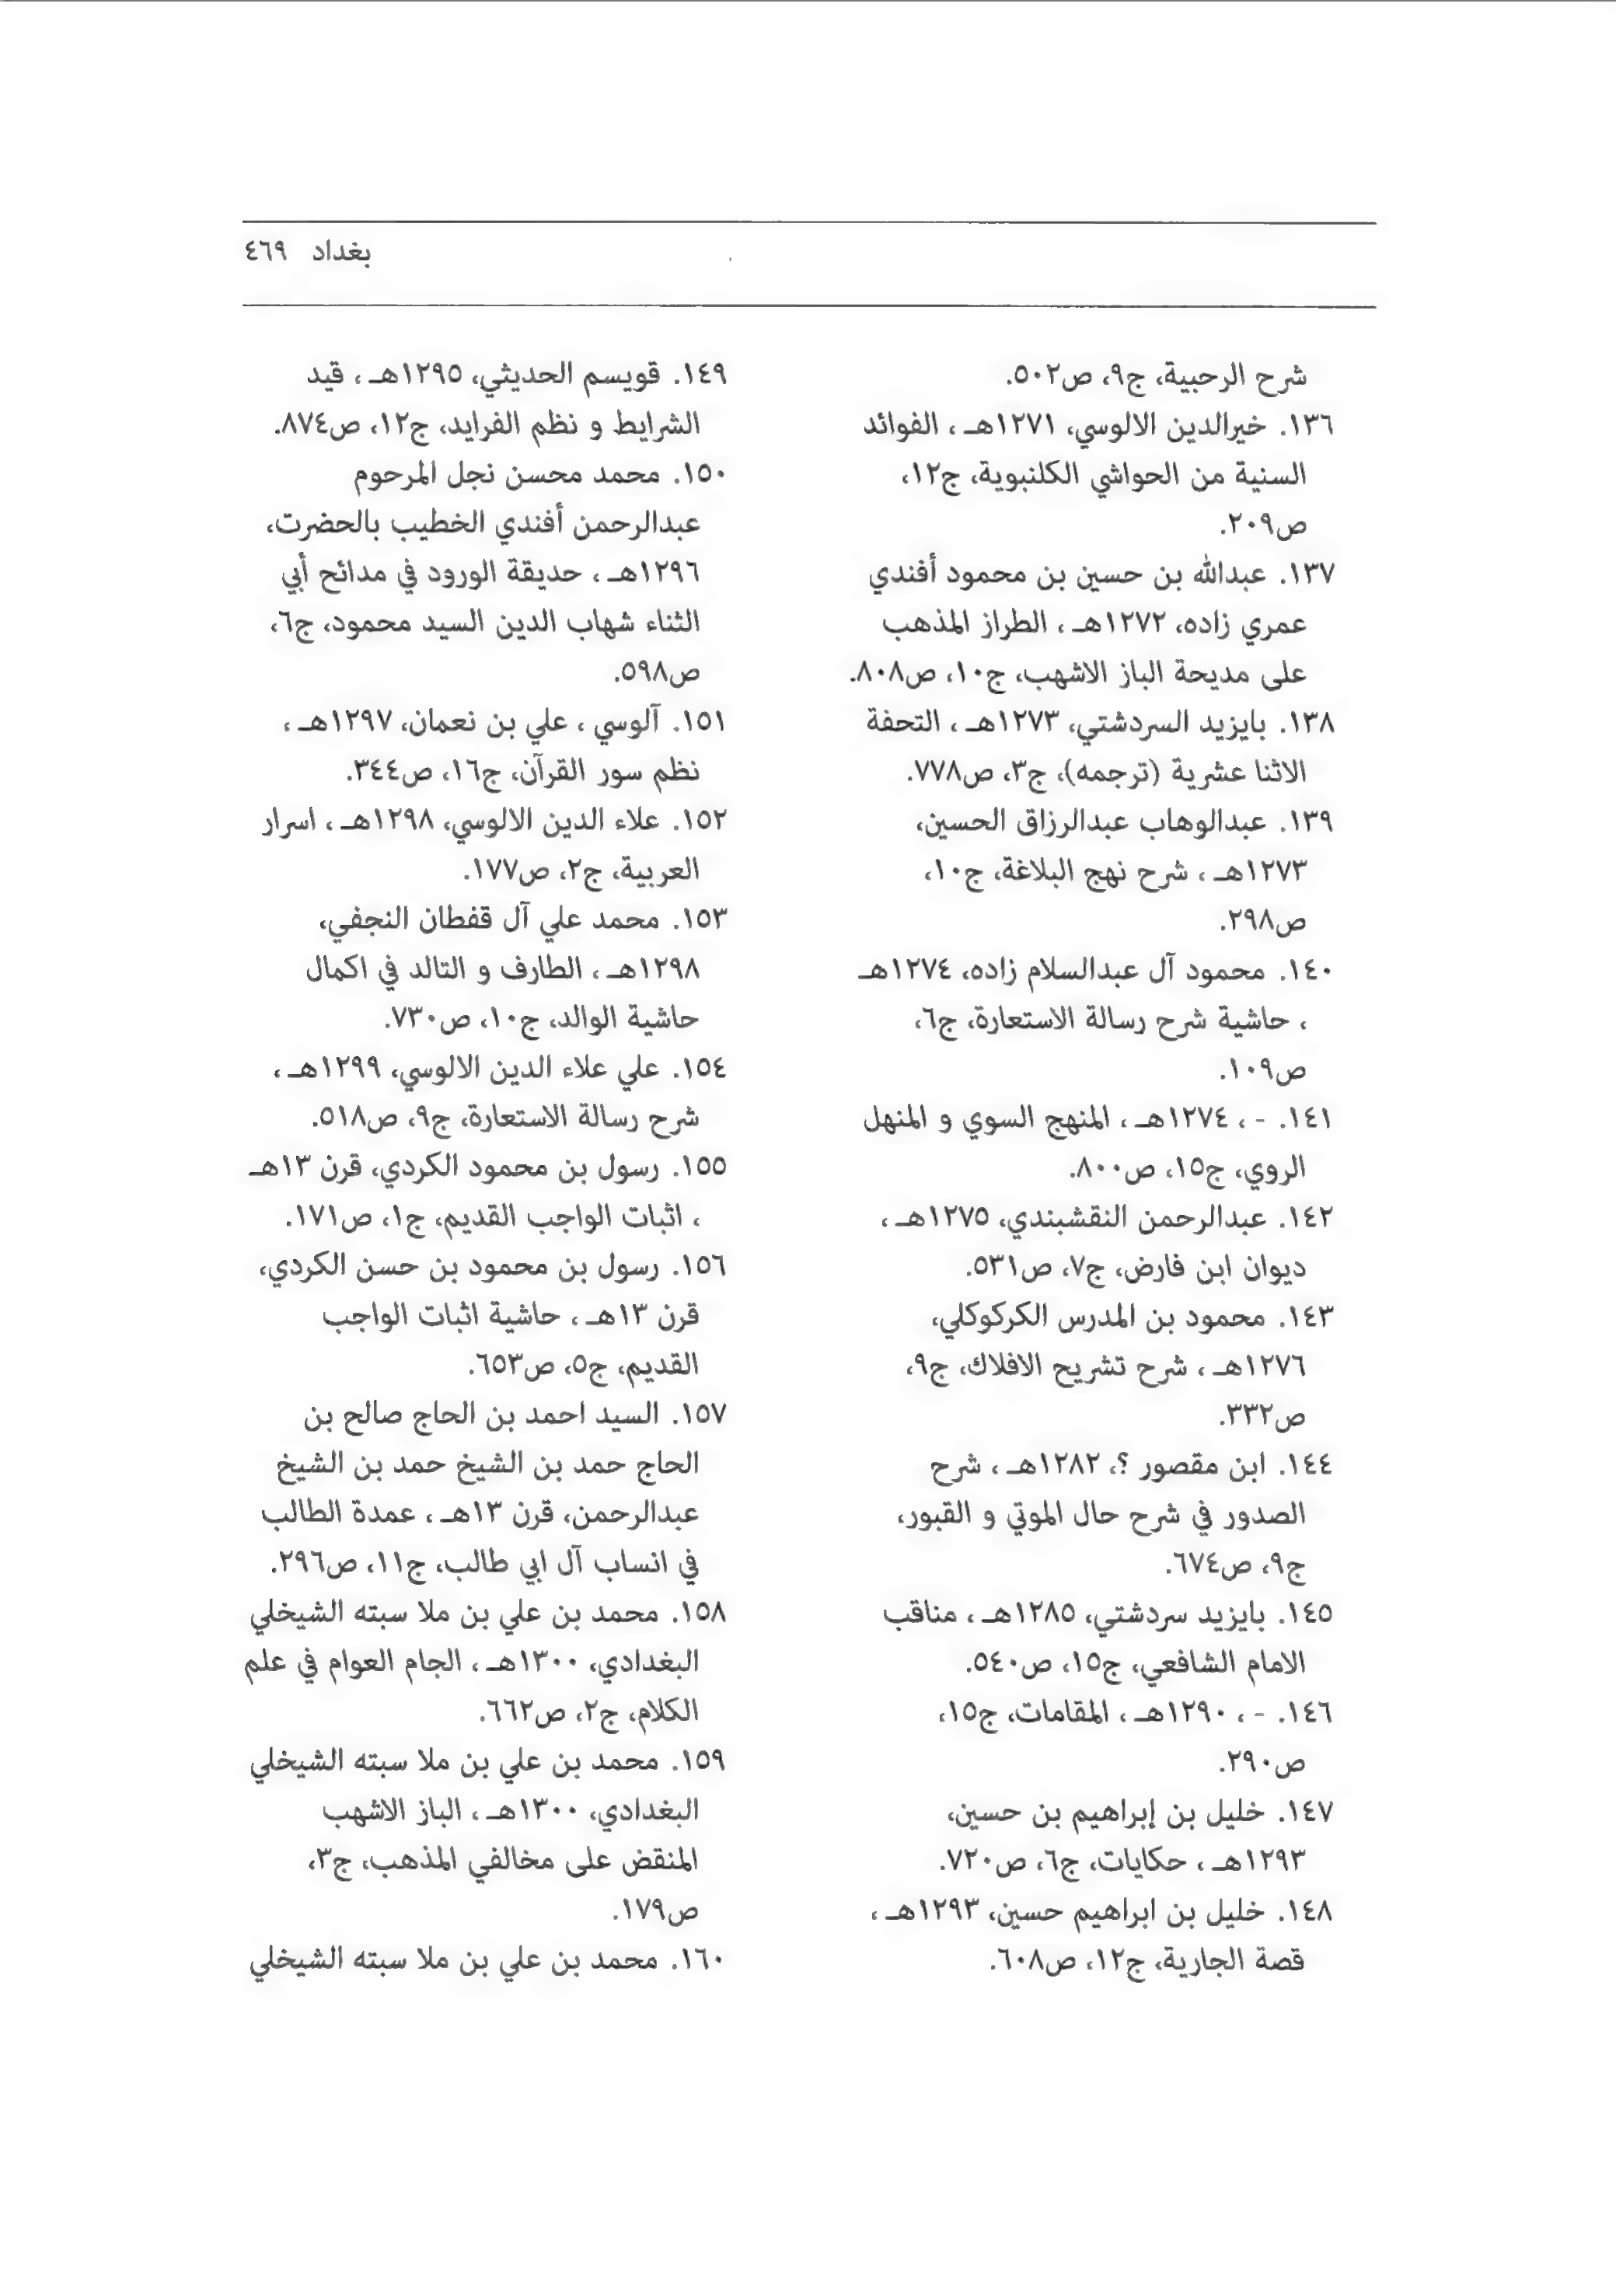 بغداد ٤٦٩
شرح الرحبية، ج٩، ص٥٠٢.
١٣٦. خيرالدين الالوسي، ١٢٧١هـ ، الفوائد
السنية من الحواشي الكلنبوية، ج١٢،
ص٢٠٩.
١٣٧. عبدالله بن حسين بن محمود أفندي
عمري زاده، ١٢٧٢هـ ، الطراز المذهب
على مديحة الباز الاشهب، ج١٠، ص٨٠٨.
١٣٨. بايزيد السردشتي، ١٢٧٣هـ ، التحفة
الاثنا عشرية (ترجمه)، ج٣، ص٧٧٨.
١٣٩. عبدالوهاب عبدالرزاق الحسين،
١٢٧٣هـ ، شرح نهج البلاغة، ج١٠،
ص٢٩٨.
١٤٠. محمود آل عبدالسلام زاده، ١٢٧٤هـ
، حاشية شرح رسالة الاستعارة، ج٦،
ص١٠٩.
١٤١. - ، ١٢٧٤هـ ، المنهج السوي و المنهل
الروي، ج١٥، ص٨٠٠.
١٤٢. عبدالرحمن النقشبندي، ١٢٧٥هـ ،
ديوان ابن فارض، ج٧، ص٥٣١.
١٤٣. محمود بن المدرس الكركوكلي،
١٢٧٦هـ ، شرح تشريح الافلاك، ج٩،
ص٣٣٢.
١٤٤. ابن مقصور ؟، ١٢٨٢هـ ، شرح
الصدور في شرح حال الموتي و القبور،
ج٩، ص٦٧٤.
١٤٥. بايزيد سردشتي، ١٢٨٥هـ ، مناقب
الامام الشافعي، ج١٥، ص٥٤٠.
١٤٦. - ، ١٢٩٠هـ ، المقامات، ج١٥،
ص٢٩٠.
١٤٧. خليل بن إبراهيم بن حسين،
١٢٩٣هـ ، حكايات، ج٦، ص٧٢٠.
١٤٨. خليل بن ابراهيم حسين، ١٢٩٣هـ ،
قصة الجارية، ج١٢، ص٦٠٨.
١٤٩. قويسم الحديثي، ١٢٩٥هـ ، قيد
الشرايط و نظم الفرايد، ج١٢، ص٨٧٤.
١٥٠. محمد محسن نجل المرحوم
عبدالرحمن أفندي الخطيب بالحضرت،
١٢٩٦هـ ، حديقة الورود في مدائح أبي
الثناء شهاب الدين السيد محمود، ج٦،
ص٥٩٨.
١٥١. آلوسي ، علي بن نعمان، ١٢٩٧هـ ،
نظم سور القرآن، ج١٦، ص٣٤٤.
١٥٢. علاء الدين الالوسي، ١٢٩٨هـ ، اسرار
العربية، ج٢، ص١٧٧.
١٥٣. محمد علي آل قفطان النجفي،
١٢٩٨هـ ، الطارف و التالد في اكمال
حاشية الوالد، ج١٠، ص٧٣٠.
١٥٤. علي علاء الدين الالوسي، ١٢٩٩هـ ،
شرح رسالة الاستعارة، ج٩، ص٥١٨.
١٥٥. رسول بن محمود الكردي، قرن ١٣هـ
، اثبات الواجب القديم، ج١، ص١٧١.
١٥٦. رسول بن محمود بن حسن الكردي،
قرن ١٣هـ ، حاشية اثبات الواجب
القديم، ج٥، ص٦٥٣.
١٥٧. السيد احمد بن الحاج صالح بن
الحاج حمد بن الشيخ حمد بن الشيخ
عبدالرحمن، قرن ١٣هـ ، عمدة الطالب
في انساب آل ابي طالب، ج١١، ص٢٩٦.
١٥٨. محمد بن علي بن ملا سبته الشيخلي
البغدادي، ١٣٠٠هـ ، الجام العوام في علم
الكلام، ج٢، ص٦٦٢.
١٥٩. محمد بن علي بن ملا سبته الشيخلي
البغدادي، ١٣٠٠هـ ، الباز الاشهب
المنقض على مخالفي المذهب، ج٣،
ص١٧٩.
١٦٠. محمد بن علي بن ملا سبته الشيخلي